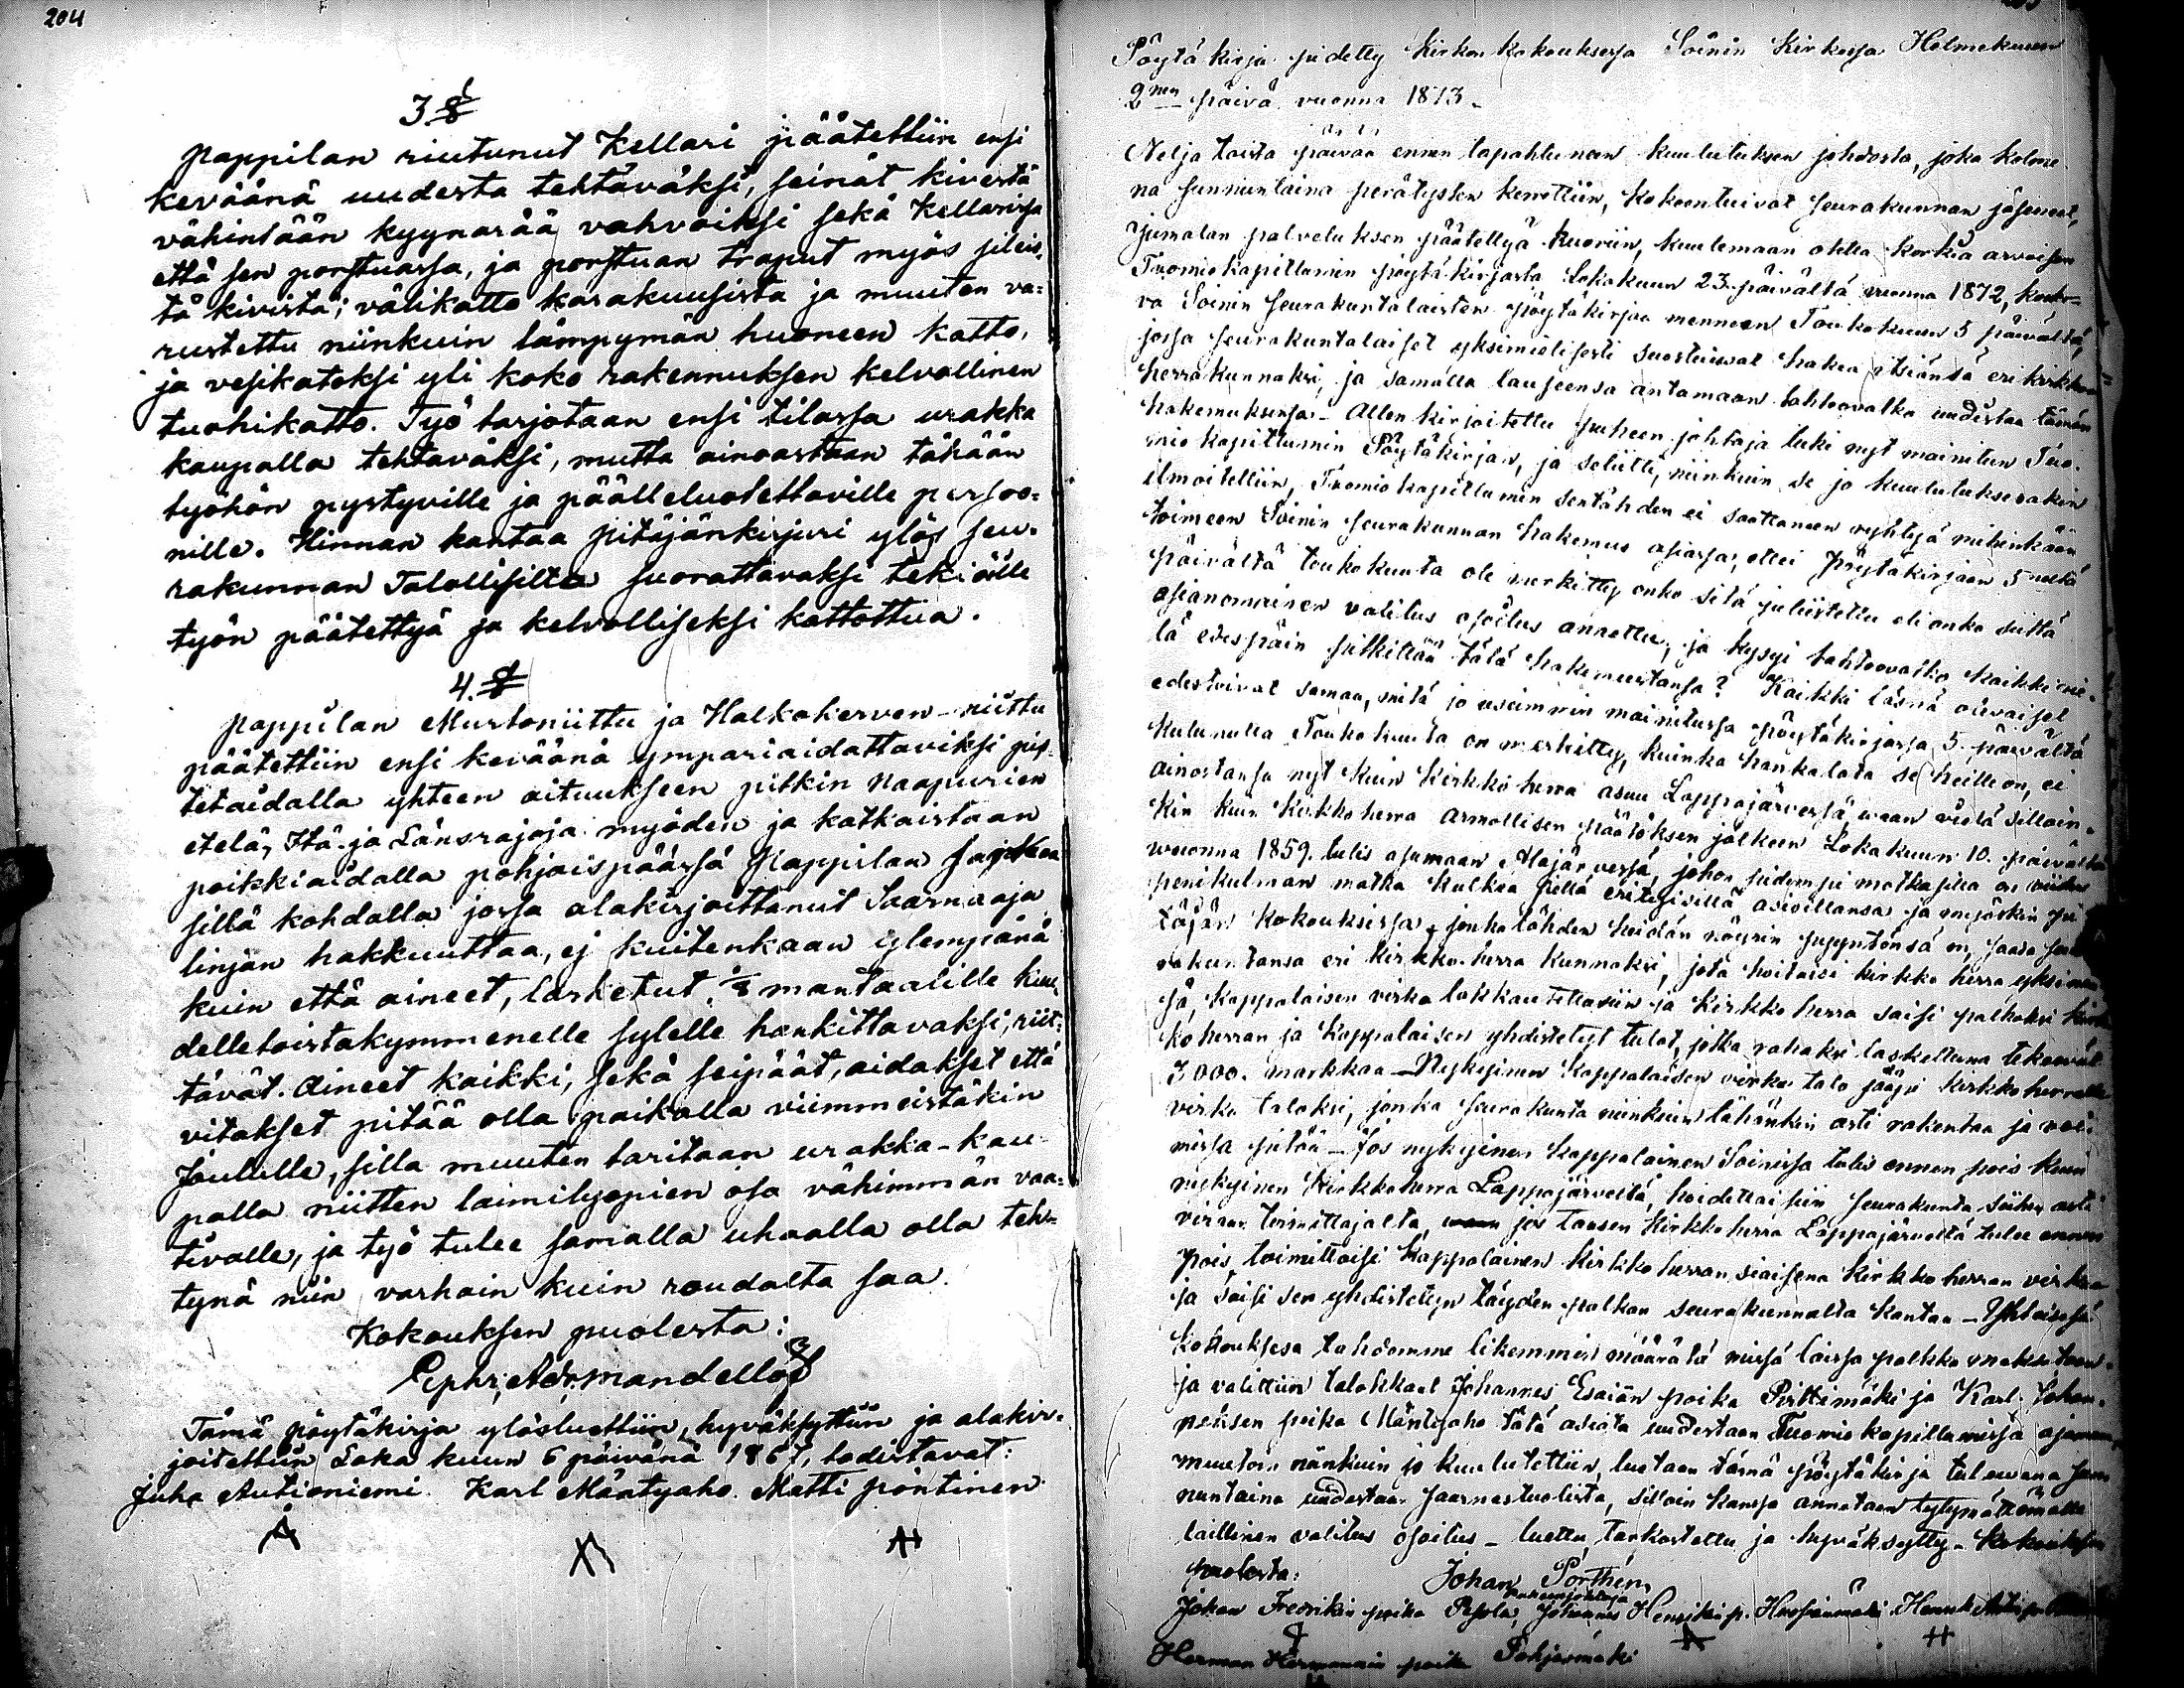 204
3 §
pappilan riutunut Kellari päätettiin ensi
keväänä uudesta tehtäväksi, seinät kivestä
vähintään kyynarää vahvoiksi sekä Kellarissa
että sen porstuassa, ja porstuan traput myös sileis-
tä kivistä; välikatto karakuusista ja muuten va=
rustettu niinkuin lämpymän huoneen katto,
ja vesikatoksi yli koko rakennuksen kelvollinen
tuohikatto. Työ tarjotaan ensi tilassa urakka
kaupalla tehtäväksi, mutta ainoastaan tähään
työhön pystyville ja päälleluotettaville persoo=
nille. Hinnan kantaa pitäjänkirjuri ylös seu-
rakunnan Talollisilta suorattavaksi tekiälle
työn päätettyä ja kelvolliseksi kattottua.
4. §
pappilan Murtoniittu ja Halkokerven-niittu
päätettiin ensi keväänä ympariaidattaviksi pis-
tetaidalla yhteen aituukseen pitkin Naapurien
etelä, Itä- ja Länsrajoja myöden ja katkaistaan
poikkiaidalla pohjaispäässä Pappilan
sillä kohdalla jossa alakirjoittanut Saarnaaja
linjan hakkuuttaa, ej kuitenkaan ylempänä
kuin että aineet, lasketut ⅛ mantaalille kuu-
delletoistakymmenelle sylelle hankittavaksi, riit-
tävät. Aineet kaikki, sekä seipäät, aidakset että
vitakset pitää olla paikalla viimmeistäkin
Joululle, silla muuten taritaan urakka-kau-
palla niitten laimilyöpien osa vähimmän vaa-
tivalle, ja työ tulee samalla uhaalla olla teh-
tynä niin varhain kuin roudalta saa.
Kokouksen puolesta:
Ad. Mandellöf
Tämä pöytäkirja ylösluettiin, hyväksyttiin ja alakir-
joitettiin Loka kuun 6 päivänä 1867, todistavat:
Juha Autioniemi Karl Mäntyaho Matti pöntinen
Pöytä kirja pidetty Kirkon kokouksessa Soinin Kirkossa Helmekuun
2nen päivä vuonna 1873.
Nelja toista päivää ennen tapahtuneen kuulutuksen johdosta, joka kolme
na sunnuntaina perätysten kerrottiin, kokoontuivat seurakunnan jäsenet,
Jumalan palveluksen päätettyä Kuoriin, kuulemaan otetta korkia arvoisen
Tuomiokapitlumin pöytäkirjasta Lokakuun 23. päivältä vuonna 1872, koske-
va Soinin seurakuntalaisten pöytäkirjaa menneen Toukokuun 5 päivältä,
jossa seurakuntalaiset yksimielisesti suostuiwat hakea itsiänsä eri kirkko
herrakunnaksi, ja samalla lauseensa antamaan tahtoovatko uudistaa tämän
hakemuksensa - Allen kirjoitettu puheen johtaja luki nyt mainitun Tuo-
mio kapitlumin Pöytäkirjan, ja selitti, niinkuin se jo kuulutuksessakin
ilmoitettiin, Tuomiokapitlumin sentähden ei saattaneen ryhtyä mihinkään
toimeen Soinin seurakunnan hakemus asiassa, ettei pöytäkirjaan 5
päivältä toukokuuta ole merkitty onko sitä julistettu eli onko siitä
asianomainen valitus osoitus annettu, ja kysyi tahtoovatko kaikki vie-
lä edespäin pitkittää tätä hakemustansa? Kaikki läsnä olevaiset
edestoivat samaa, mitä jo useimmin mainitussa pöytäkirjassa 5. päivältä
kulunutta Toukokuuta on merkitty, kuinka hankalata se heille on, ei
ainostansa nyt kuin Kirkko herra asuu Lappajärvessä, waan vielä silloin-
kin kuin Kirkko herra armollisen päätöksen jälkeen Lokakuun 10. päivältä
vuonna 1859. tulis asumaan Alajärvessä, johon pidempi matkasilla on
penikulman matka kulkea sekä erityisillä asioillansa ja myöskin pi
täjän kokouksissa, jonka tähden heidän nöyrin pyyntönsä on, saada seu
rakuntansa eri kirkko herra kunnaksi, jota hoitaisi kirkko herra yksinän
sä, Kappalaisen virka lakkautettasiin ja Kirkko herra saisi palkaksi kirk
koherran ja kappalaisen yhdistetyt tulot, jotka rahaksi laskettuna tekeevät
3000. markkaa - Nykyinen Kappalaisen virka talo jääpi kirkkoherralle
virka taloksi, jonka seurakunta niinkuin tähänkin asti rakentaa ja voi-
missa pitää - Jos nykyinen kappalainen Soinissa tulis ennen pois kuin
nykyinen Kirkkoherra Lappajärveltä, hoidettaisiin seurakunta siihen asti
viran toimittajalta, jos taasen Kirkko herra Lappajärveltä tulee ennen
pois, toimittaisi Kappalainen kirkko herran siaisena kirkko herran virkaa
ja saisi sen yhdistetyn täyden palkan seurakunnalta kantaa -
kokouksesa tahdomme likemmin määrätä missä laissa palkka maksetaan
ja valittiin talokkaat Johannes Esaiän poika Pirttimäki ja Karl Johan-
neksen poika Mäntyaho tätä asiata uudestaan Tuomio kapitlumissa ajamaan,
muutoin niinkuin jo kuulutettiin, luetaan tämä pöytäkirja tulevana sun
nuntaina uudestaan saarnastuolista, silloin kanssa annetaan tytymättömälle
laillinen valitus osoitus - luettu, tarkastettu ja hyväksytty - Kokouksen
puolesta:
Johan Porthén,
puheenjohtaja
Johan Fredrikin poika Pesola, Johannes Henrikin p. Henrik
Herman Hermannin poika Pohjosmäki